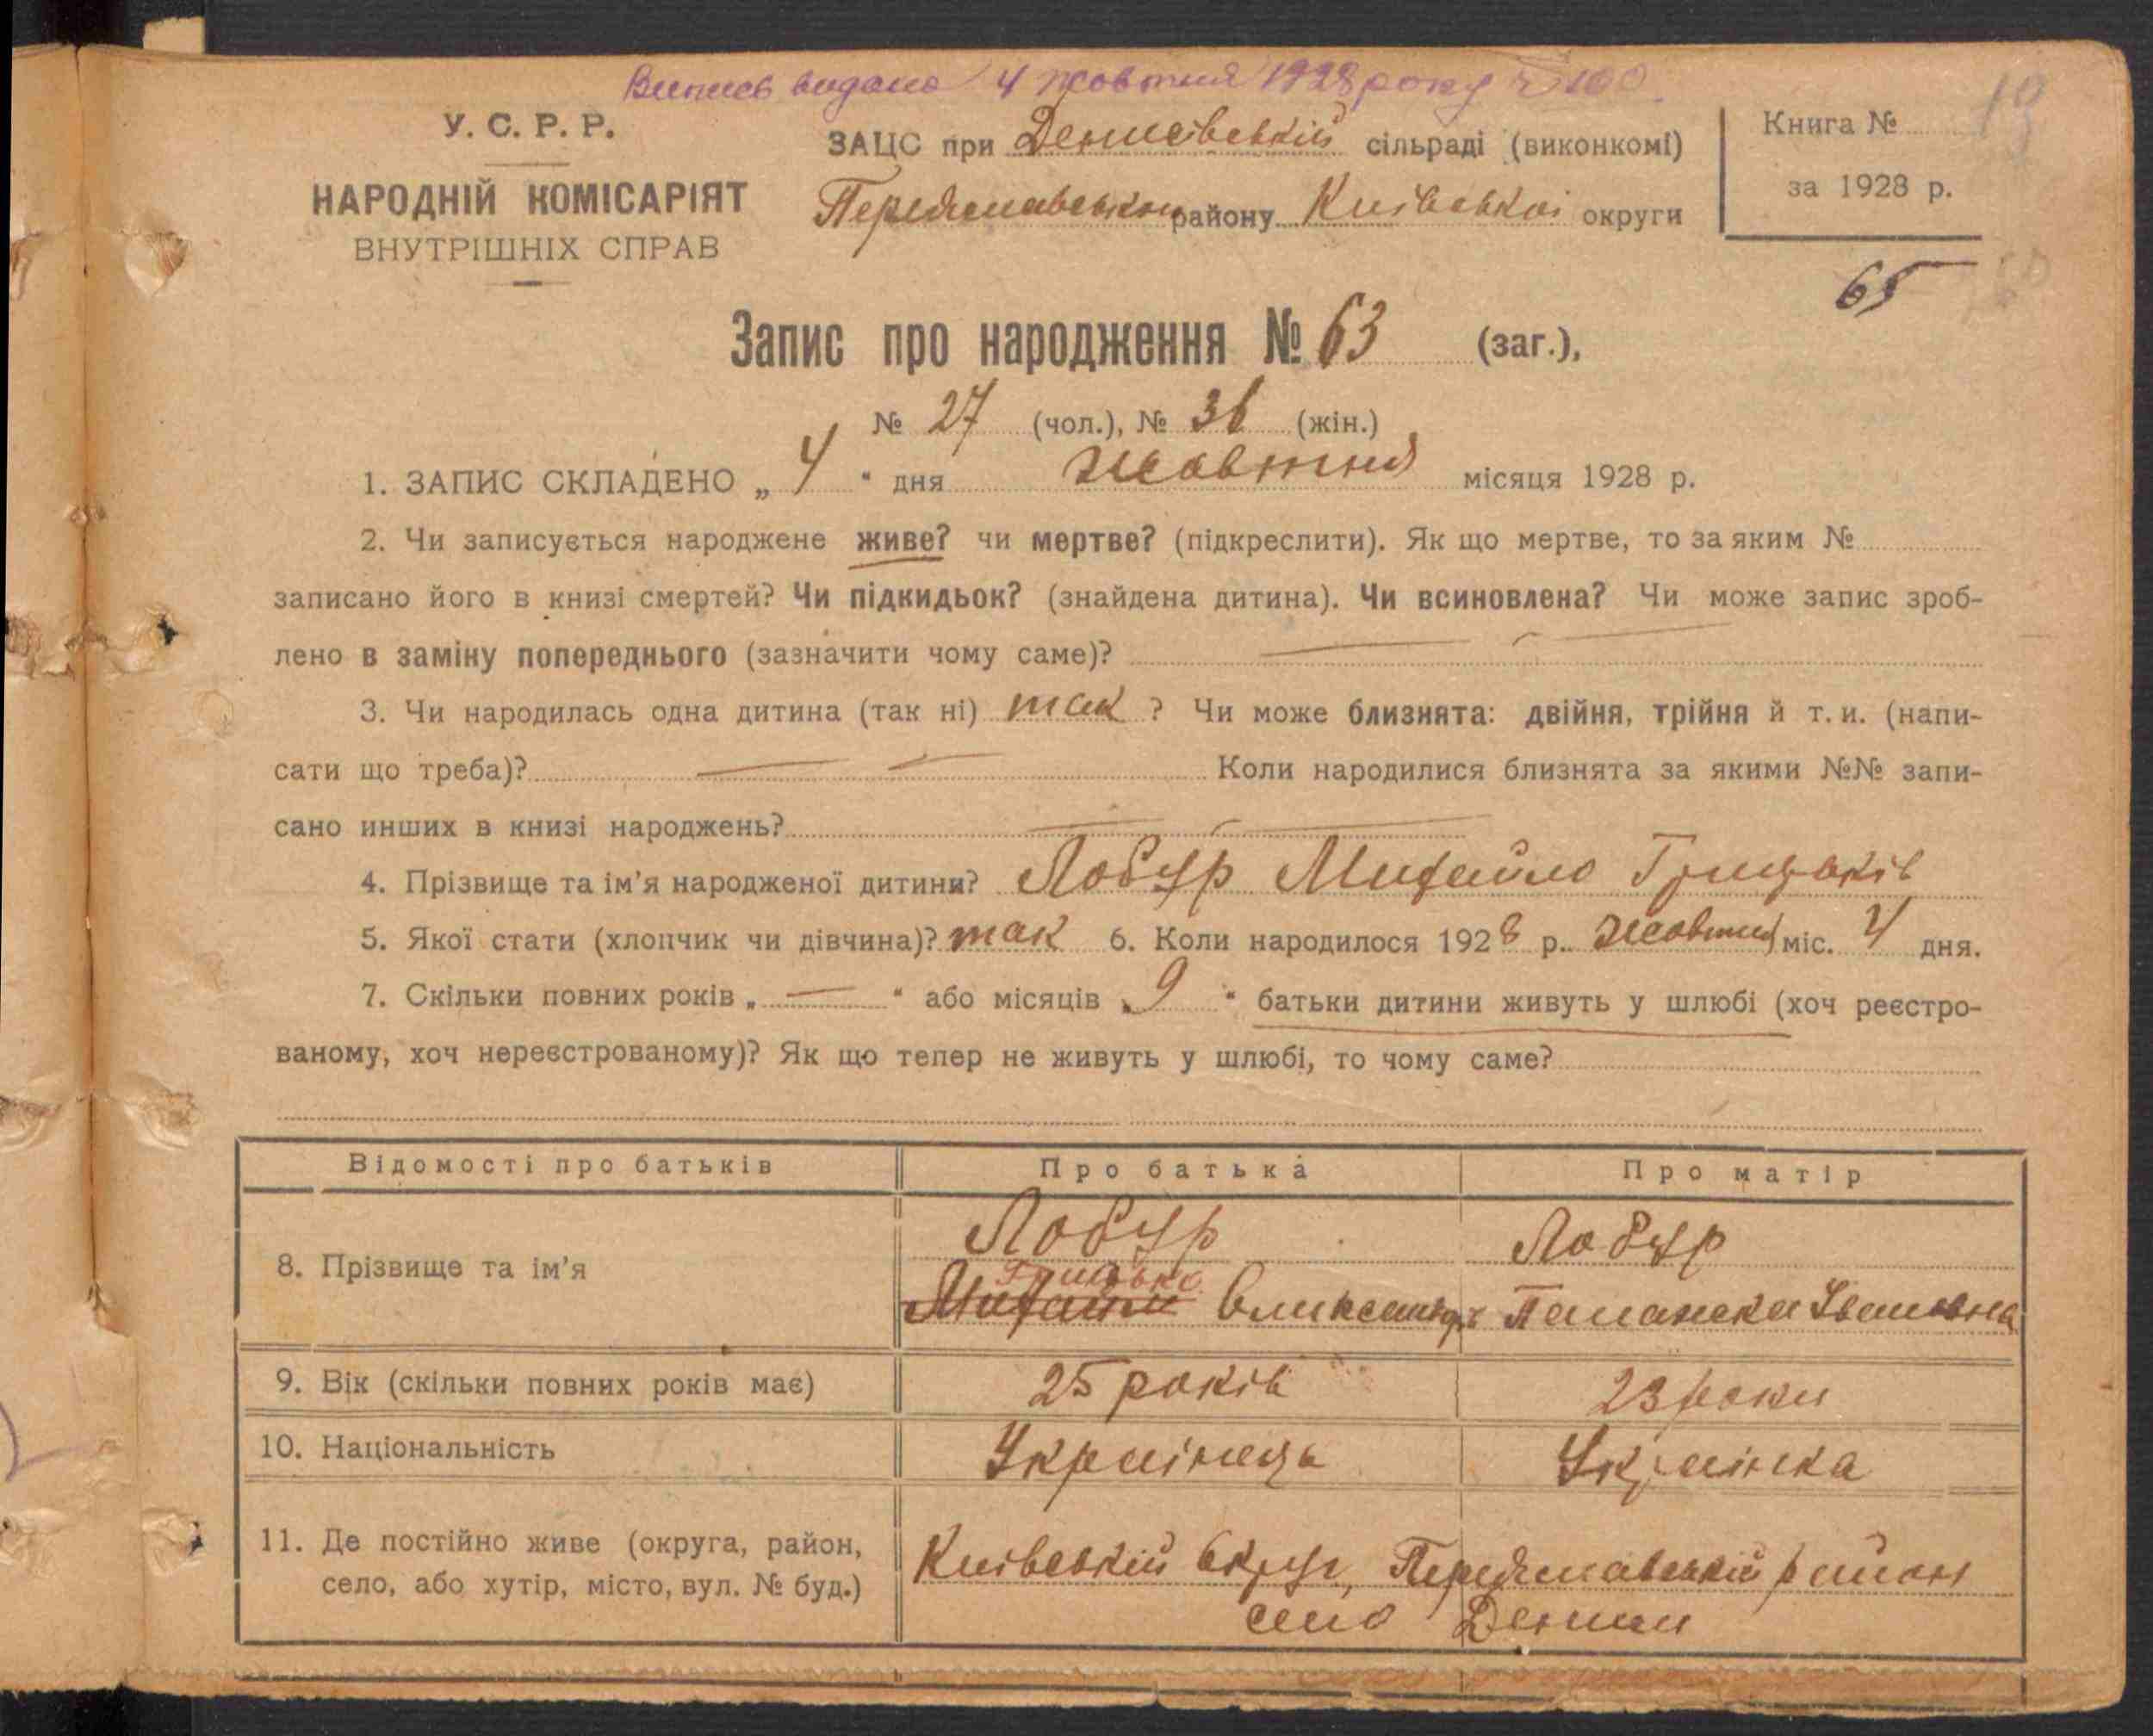 Випись видано 4 жовтня 1928 року № 100
У. С. Р. Р.
НАРОДНІЙ КОМІСАРІЯТ
ВНУТРІШНІХ СПРАВ
ЗАЦС при Денисівській сільраді (виконкомі)
Переяславськом району Київської округи
Книга №
за 1928 р.
65
Запис про народження № 63 (заг.),
№ 27 (чол.), № 36 (жін.)
1. ЗАПИС СКЛАДЕНО „ 4 “ дня жовтня місяця 1928 р.
2. Чи записується народжене живе? чи мертве? (підкреслити). Як що мертве, то за яким №
записано його в книзі смертей? Чи підкидьок? (знайдена дитина). Чи всиновлена? Чи може запис зроб-
лено в заміну попереднього (зазначити чому саме)? —
3. Чи народилась одна дитина (так ні) так ? Чи може близнята: двійня, трійня й т. и. (напи-
сати що треба)? — Коли народилися близнята за якими №№ запи-
сано инших в книзі народжень? —
4. Прізвище та ім’я народженої дитини? Лобур Михайло Грицьків
5. Якої стати (хлопчик чи дівчина)? так 6. Коли народилося 1928 р. жовтня міс. 4 дня.
7. Скільки повних років „ — “ або місяців „ 9 “ батьки дитини живуть у шлюбі (хоч реєстро-
ваному, хоч нереєстрованому)? Як що тепер не живуть у шлюбі, то чому саме?
Відомості про батьків Про батька Про матір
8. Прізвище та ім’я Лобур Лобур
Грицько
Михайло Олександр Параска Івановна
9. Вік (скільки повних років має) 25 років 23 роки
10. Національність Українець Українка
11. Де постійно живе (округа, район,
село, або хутір, місто, вул. № буд.)
Київській Округ, Переяславській район
село Дениси